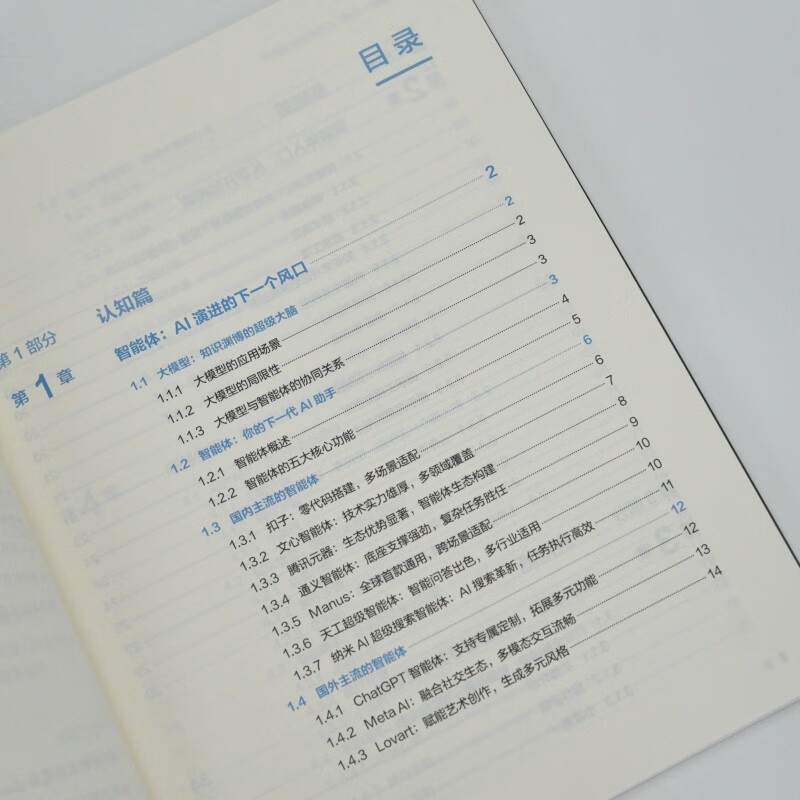 目录
第1部分 认知篇
第1章 智能体：AI 演进的下一个风口 2
1.1 大模型：知识渊博的超级大脑 2
1.1.1 大模型的应用场景 2
1.1.2 大模型的局限性 3
1.1.3 大模型与智能体的协同关系 3
1.2 智能体：你的下一代 AI 助手 3
1.2.1 智能体概述 4
1.2.2 智能体的五大核心功能 5
1.3 国内主流的智能体 6
1.3.1 扣子：零代码搭建，多场景适配 6
1.3.2 文心智能体：技术实力雄厚，多领域覆盖 7
1.3.3 腾讯元器：生态优势显著，智能体生态构建 8
1.3.4 通义智能体：底座支撑强劲，复杂任务胜任 9
1.3.5 Manus：全球首款通用，跨场景适配 10
1.3.6 天工超级智能体：智能问答出色，多行业适用 10
1.3.7 纳米 AI 超级搜索智能体：AI 搜索革新，任务执行高效 11
1.4 国外主流的智能体 12
1.4.1 ChatGPT 智能体：支持专属定制，拓展多元功能 12
1.4.2 Meta AI：融合社交生态，多模态交互流畅 13
1.4.3 Lovart：赋能艺术创作，生成多元风格 14